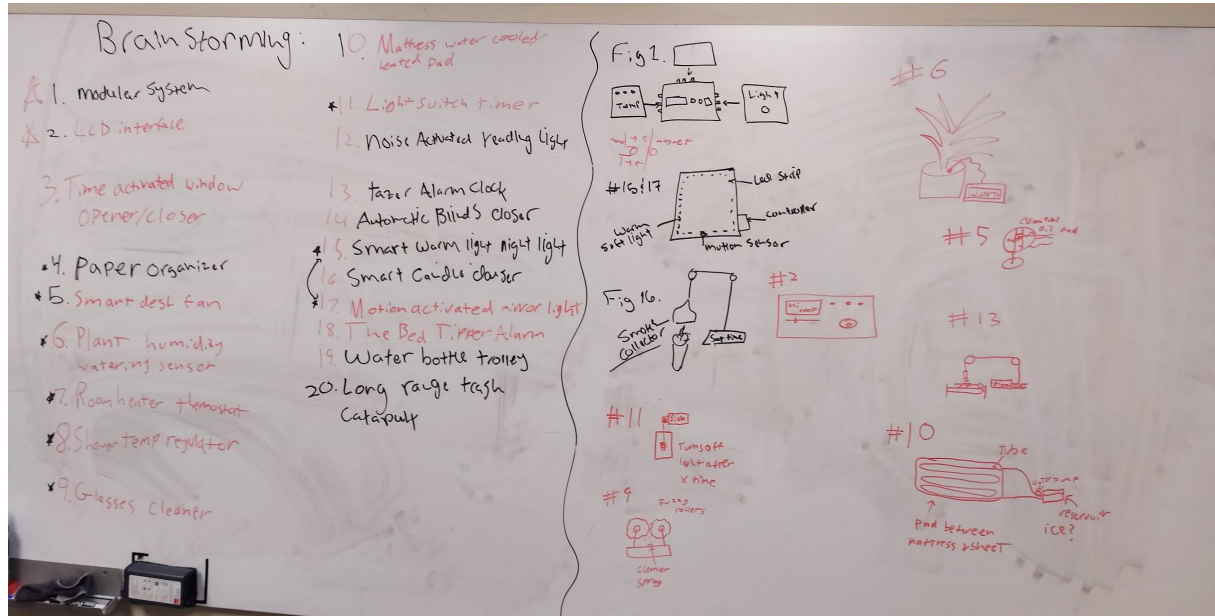 Brainstorming:
1. modular system
2. LCD interface
3. Time activated window
opener/closer
*4. Paper organizer
*5. Smart desk fan
*6. Plant humidity
watering sensor
*7. Room heater thermostat
*8. Shower temp regulator
*9. Glasses cleaner
10. Mattress water cooled
heated pad
*11. Light switch timer
12. Noise Activated reading light
13. tazer Alarm Clock
14. Automatic Blinds closer
*15. Smart warm light night light
16. Smart Candle
*17. Motion activated mirror light
18. The Bed Tipper Alarm
19. Water bottle trolley
20. Long range trash
Catapult
Fig 1.
Temp
Light
magnet
#15&17
Led Strip
controller
warm
soft light
motion sensor
Fig 16.
Smoke
Collector
#2
#11
Turns off
light after
x time
#9
fuzzy
rollers
cleaner
spray
#6
#5
#13
#10
Tube
reservoir
ice?
pad between
mattress & sheet